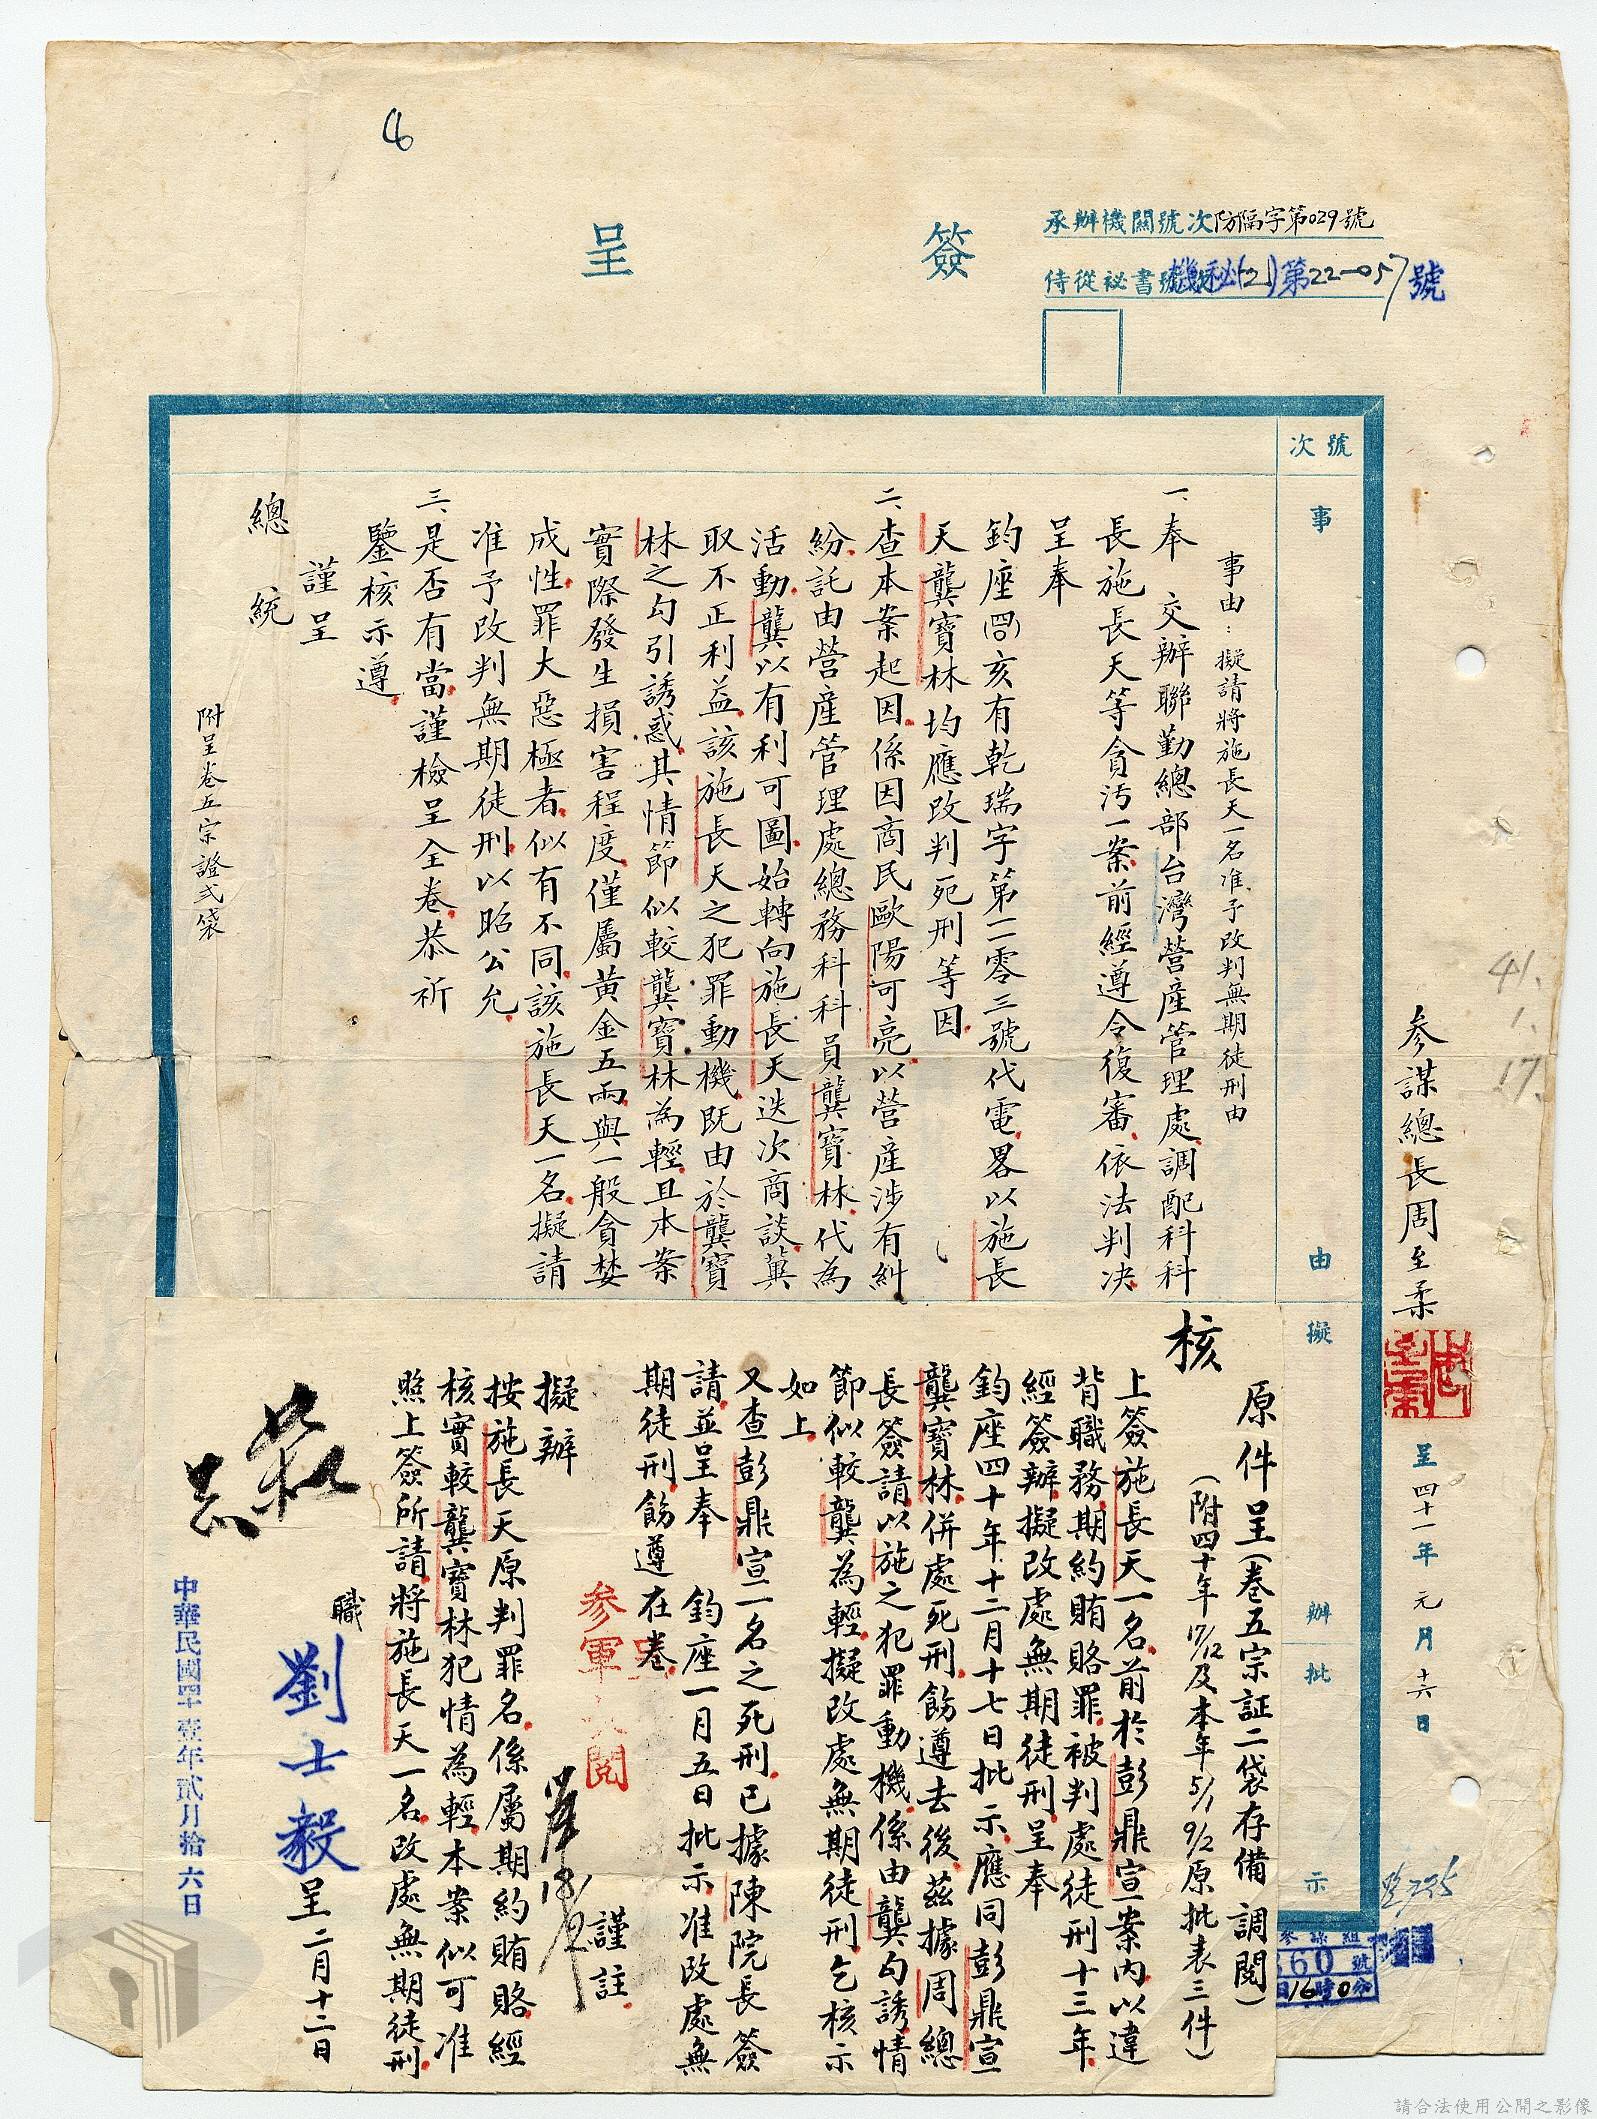 簽呈
承辦機關號次防隔字第029號
侍從祕書號次機秘(21)第22-057號
號次
事由
擬辦
批示
參謀總長周至柔
呈四十一年元月十六日
41.1.17.
事由：擬請將施長天一名准予改判無期徒刑由
一、奉　交辦聯勤總部台灣營產管理處調配科科
長施長天等貪污一案前經遵令復審依法判決
呈奉
鈞座(四十)亥有乾瑞字第一一零三號代電畧以施長
天龔寶林均應改判死刑等因
二、查本案起因係因商民歐陽可亮以營產涉有糾
紛託由營產管理處總務科科員龔寶林代為
活動龔以有利可圖始轉向施長天迭次商談冀
取不正利益該施長天之犯罪動機既由於龔寶
林之勾引誘惑其情節似較龔寶林為輕且本案
實際發生損害程度僅屬黃金五兩與一般貪婪
成性罪大惡極者似有不同該施長天一名擬請
准予改判無期徒刑以昭公允
三、是否有當謹檢呈全卷恭祈
鑒核示遵
謹呈
總統
附呈卷五宗證弍袋
原件呈(卷五宗証二袋存備調閱)
(附四十年17/12及本年5/1 9/2原批表三件)
核
上簽施長天一名前於彭鼎宣一案內以違
背職務期約賄賂罪被判處徒刑十三年
經簽辦擬改處無期徒刑呈奉
鈞座四十年十二月十七日批示應同彭鼎宣
龔寶林併處死刑飭遵去後茲據周總
長簽請以施之犯罪動機係由龔勾誘情
節似較龔為輕擬改處無期徒刑乞核示
如上
又查彭鼎宣一名之死刑已據陳院長簽
請並呈奉　鈞座一月五日批示准改處無
期徒刑飭遵在卷　謹註
擬辦
按施長天原判罪名係屬期約賄賂經
核實較龔寶林犯情為輕本案似可准
照上簽所請將施長天一名改處無期徒刑
職劉士毅呈二月十二日
中華民國四十壹年貳月拾六日
請合法使用公開之影像